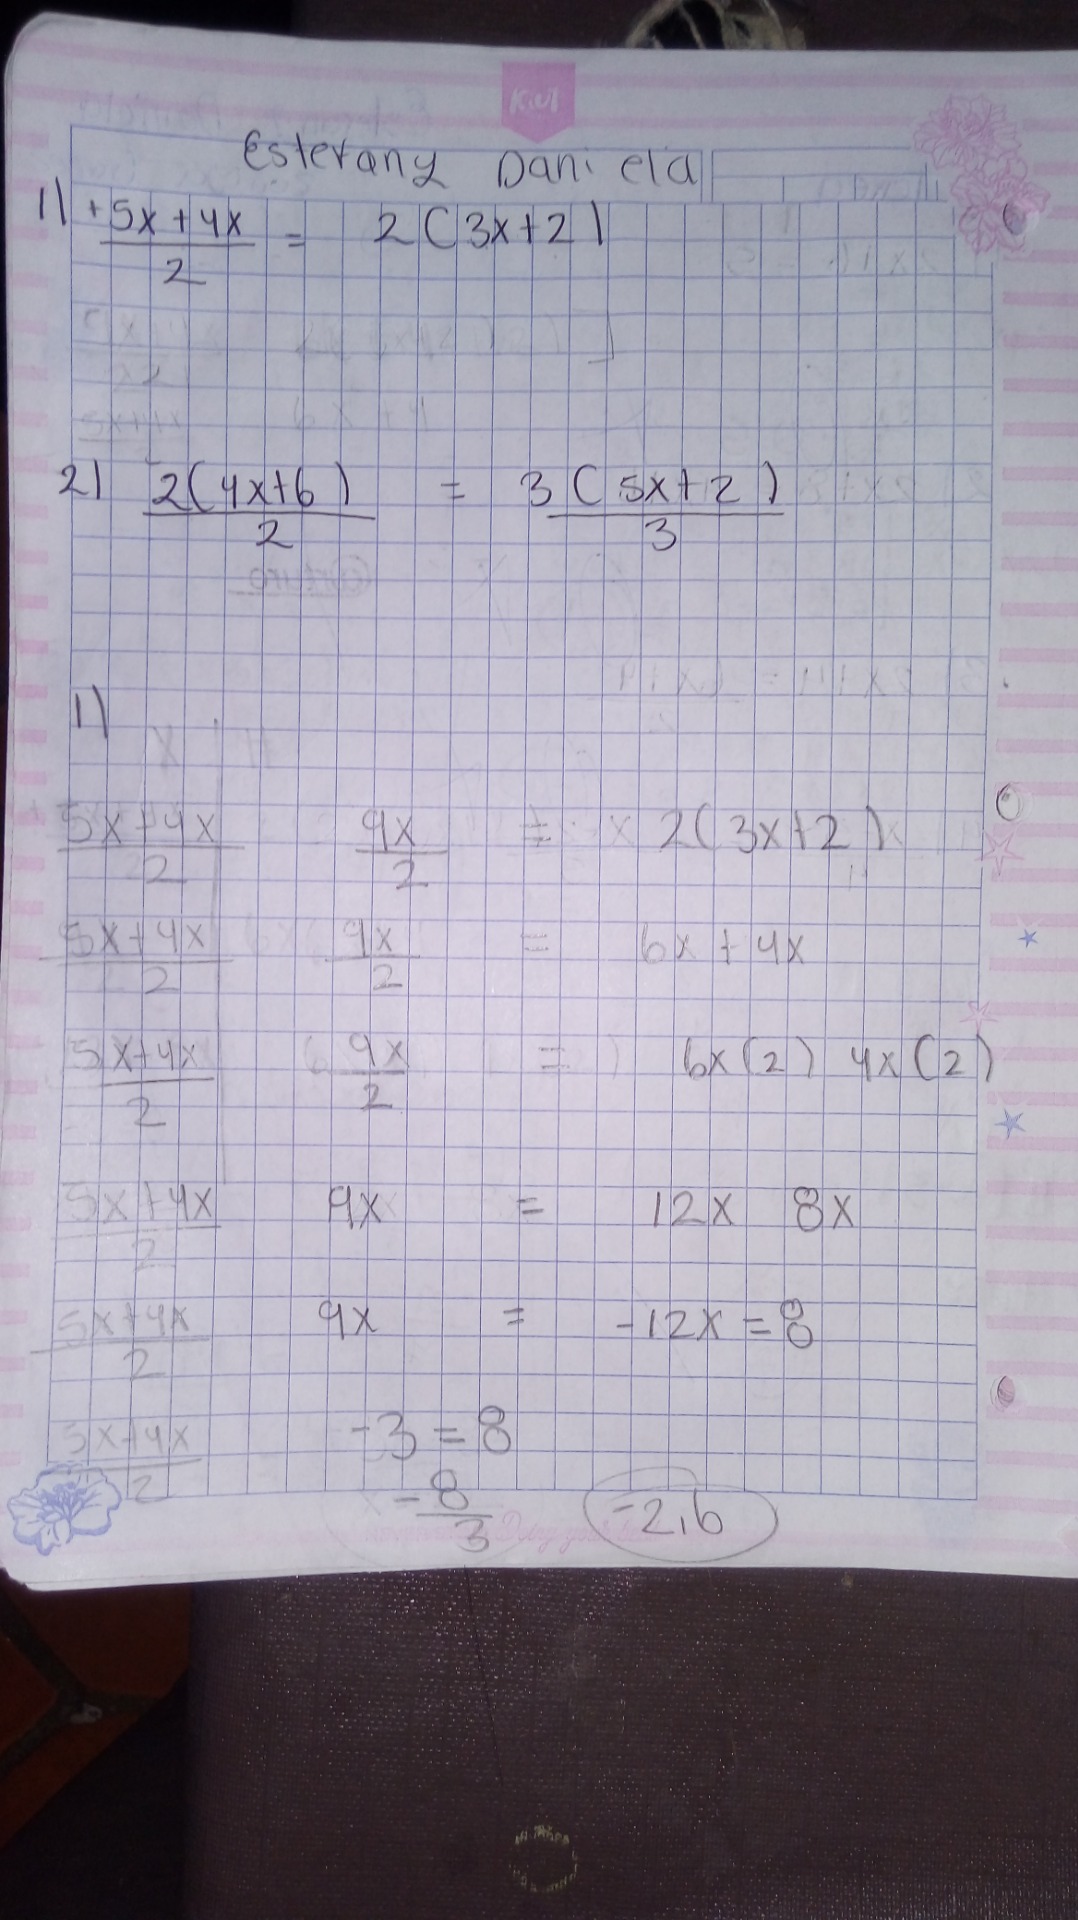 KIUT
Estefany Daniela
1) +5x+4x/2 = 2(3x+2)
2) 2(4x+6)/2 = 3(5x+2)/3
1)
5x+4x/2 9x/2 = 2(3x+2)
5x+4x/2 9x/2 = 6x+4x
5x+4x/2 9x/2 = 6x(2) 4x(2)
5x+4x/2 9x = 12x 8x
5x+4x/2 9x = -12x=8
5x+4x/2 -3=8
-8/3 -2,6